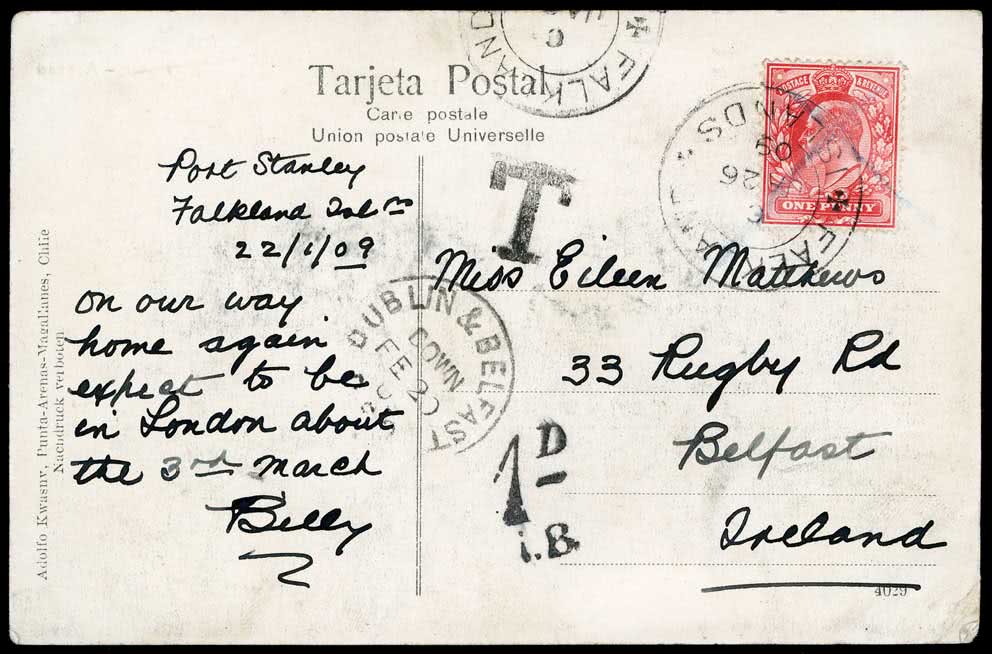 Tarjeta Postal
Carte postale
Union postale Universelle
Port Stanley
Falkland Isl^ds
22/1/09
on our way
home again
expect to be
in London about
the 3rd march
Billy
Miss Eileen Matthews
33 Rugby Rd
Belfast
Ireland
POSTAGE & REVENUE
ONE PENNY
FALKLAND
FALKLAND ISLANDS
26
09
T
DUBLIN & BELFAST
DOWN
FE 20
09
1D
I.B.
Adolfo Kwasny, Punta-Arenas-Magallanes, Chile
Nachdruck verboten
4029